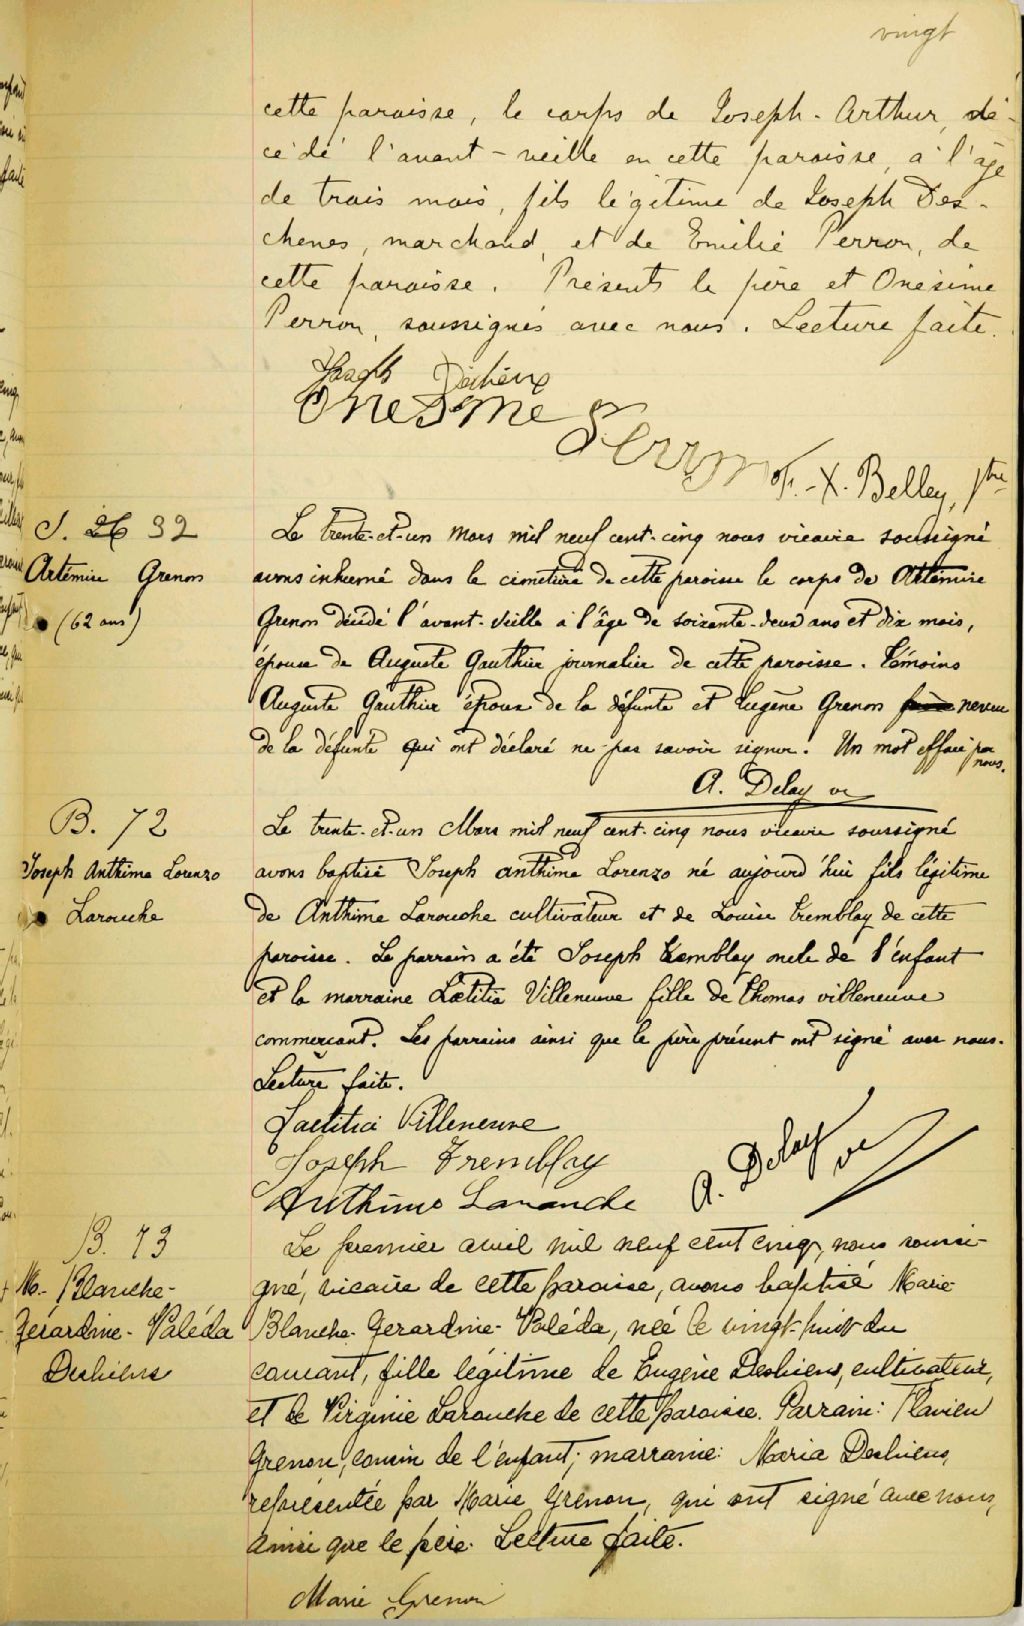 vingt
cette paroisse, le corps de Joseph-Arthur, dé-
cédé l'avant-veille en cette paroisse, à l'âge
de trois mois, fils légitime de Joseph Des-
chenes, marchand, et de Emilie Perron, de
cette paroisse. Présents le père et Onésime
Perron, soussignés avec nous. Lecture faite.
Joseph Déchène
Onesime Perron
F.-X. Belley, Ptre
S. 32
Artémise Grenon
(62 ans)
Le trente-et-un Mars mil neuf cent-cinq nous vicaire soussigné
avons inhumé dans le cimetière de cette paroisse le corps de Artémise
Grenon décédé l'avant-veille à l'âge de soixante-deux ans et dix mois,
épouse de Auguste Gauthier journalier de cette paroisse. Témoins
Auguste Gauthier époux de la défunte et Eugène Grenon frère neveu
de la défunte qui ont déclaré ne pas savoir signer. Un mot effacé par
nous.
A. Delay vic
B. 72
Joseph Anthime Lorenzo
Larouche
Le trente-et-un Mars mil neuf cent-cinq nous vicaire soussigné
avons baptisé Joseph Anthime Lorenzo né aujourd'hui fils légitime
de Anthime Larouche cultivateur et de Louise Tremblay de cette
paroisse. Le parrain a été Joseph Tremblay oncle de l'enfant
et la marraine Lœtitia Villeneuve fille de Thomas Villeneuve
commerçant. Les parrains ainsi que le père présent ont signé avec nous.
Lecture faite.
Laetitia Villeneuve
Joseph Tremblay
Anthime Larouche
A. Delay vic
B. 73
M.-Blanche-
Gérardine-Valéda
Desbiens
Le premier avril mil neuf cent cinq, nous soussi-
gné, vicaire de cette paroisse, avons baptisé Marie
Blanche-Gerardine-Valéda, née le vingt-huit du
courant, fille légitime de Eugène Desbiens, cultivateur,
et de Virginie Larouche de cette paroisse. Parrain: Flavien
Grenon, cousin de l'enfant; marraine: Maria Desbiens,
représentée par Marie Grenon, qui ont signé avec nous,
ainsi que le père. Lecture faite.
Marie Grenon